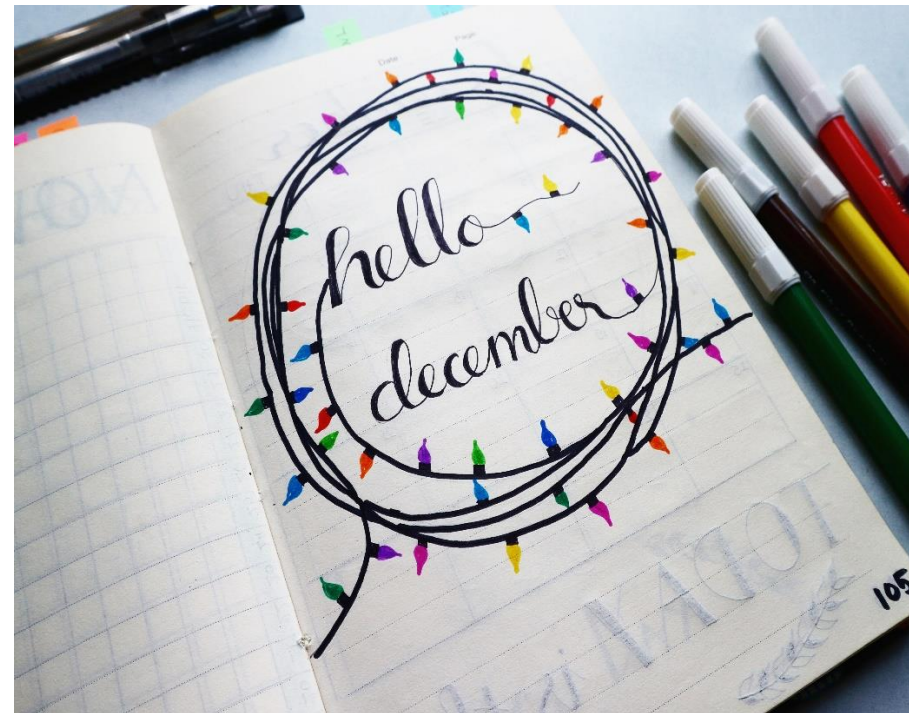 Date
Page
hello
december
105